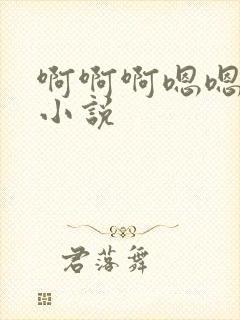 啊啊啊嗯嗯
小说
君落舞